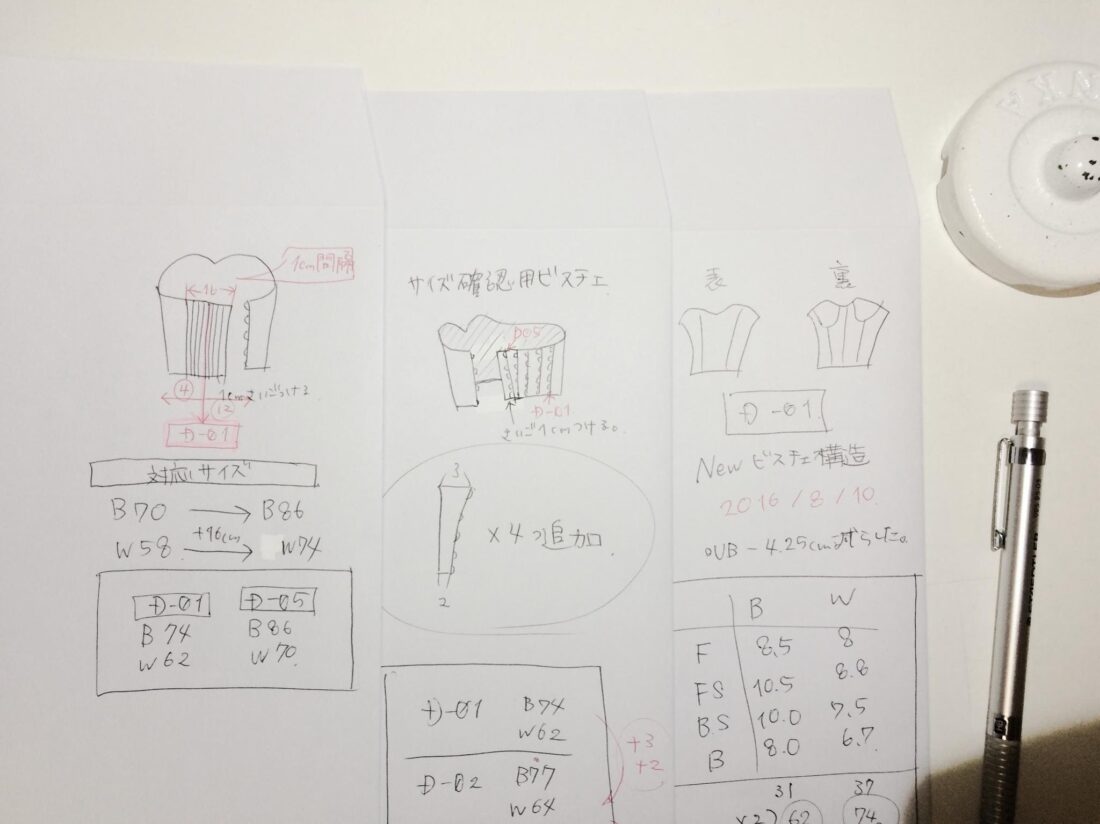 1cm間隔
16
④
1cmさいごつける
⑫
D-01
対応サイズ
B70 → B86
+16cm
W58 → W74
D-01 D-05
B74 B86
W62 W70
サイズ確認用ビスチェ
D05
D-01
さいご1cmつける。
3
×4つ追加
2
D-01 B74
W62
D-02 B77
W64
+3
+2
表 裏
D-01
Newビスチェ構造
2016/8/10
○UB-4.25cm減らした。
B W
F 8.5 8
FS 10.5 8.8
B.S 10.0 7.5
B 8.0 6.7
31 37
×2) 62 74